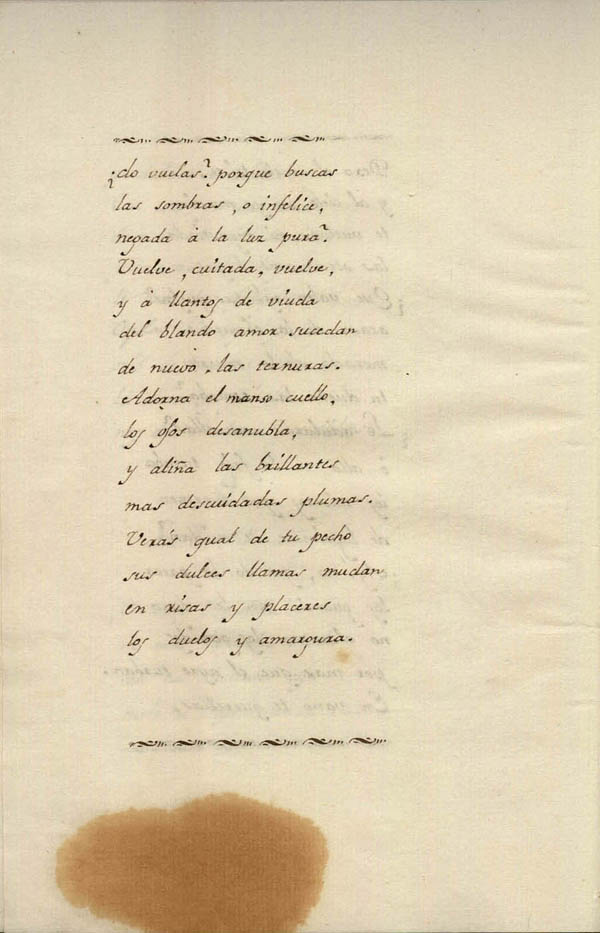 ¿do vuelas? porque buscas
las sombras, o infelice,
negada à la luz pura?
Vuelve, cuitada, vuelve,
y à llantos de viuda
del blando amor sucedan
de nuevo, las ternuras.
Adorna el manso cuello,
los ojos desanubla,
y aliña las brillantes
mas descuidadas plumas.
Verás qual de tu pecho
sus dulces llamas mudan
en risas y placeres
los duelos y amargura.